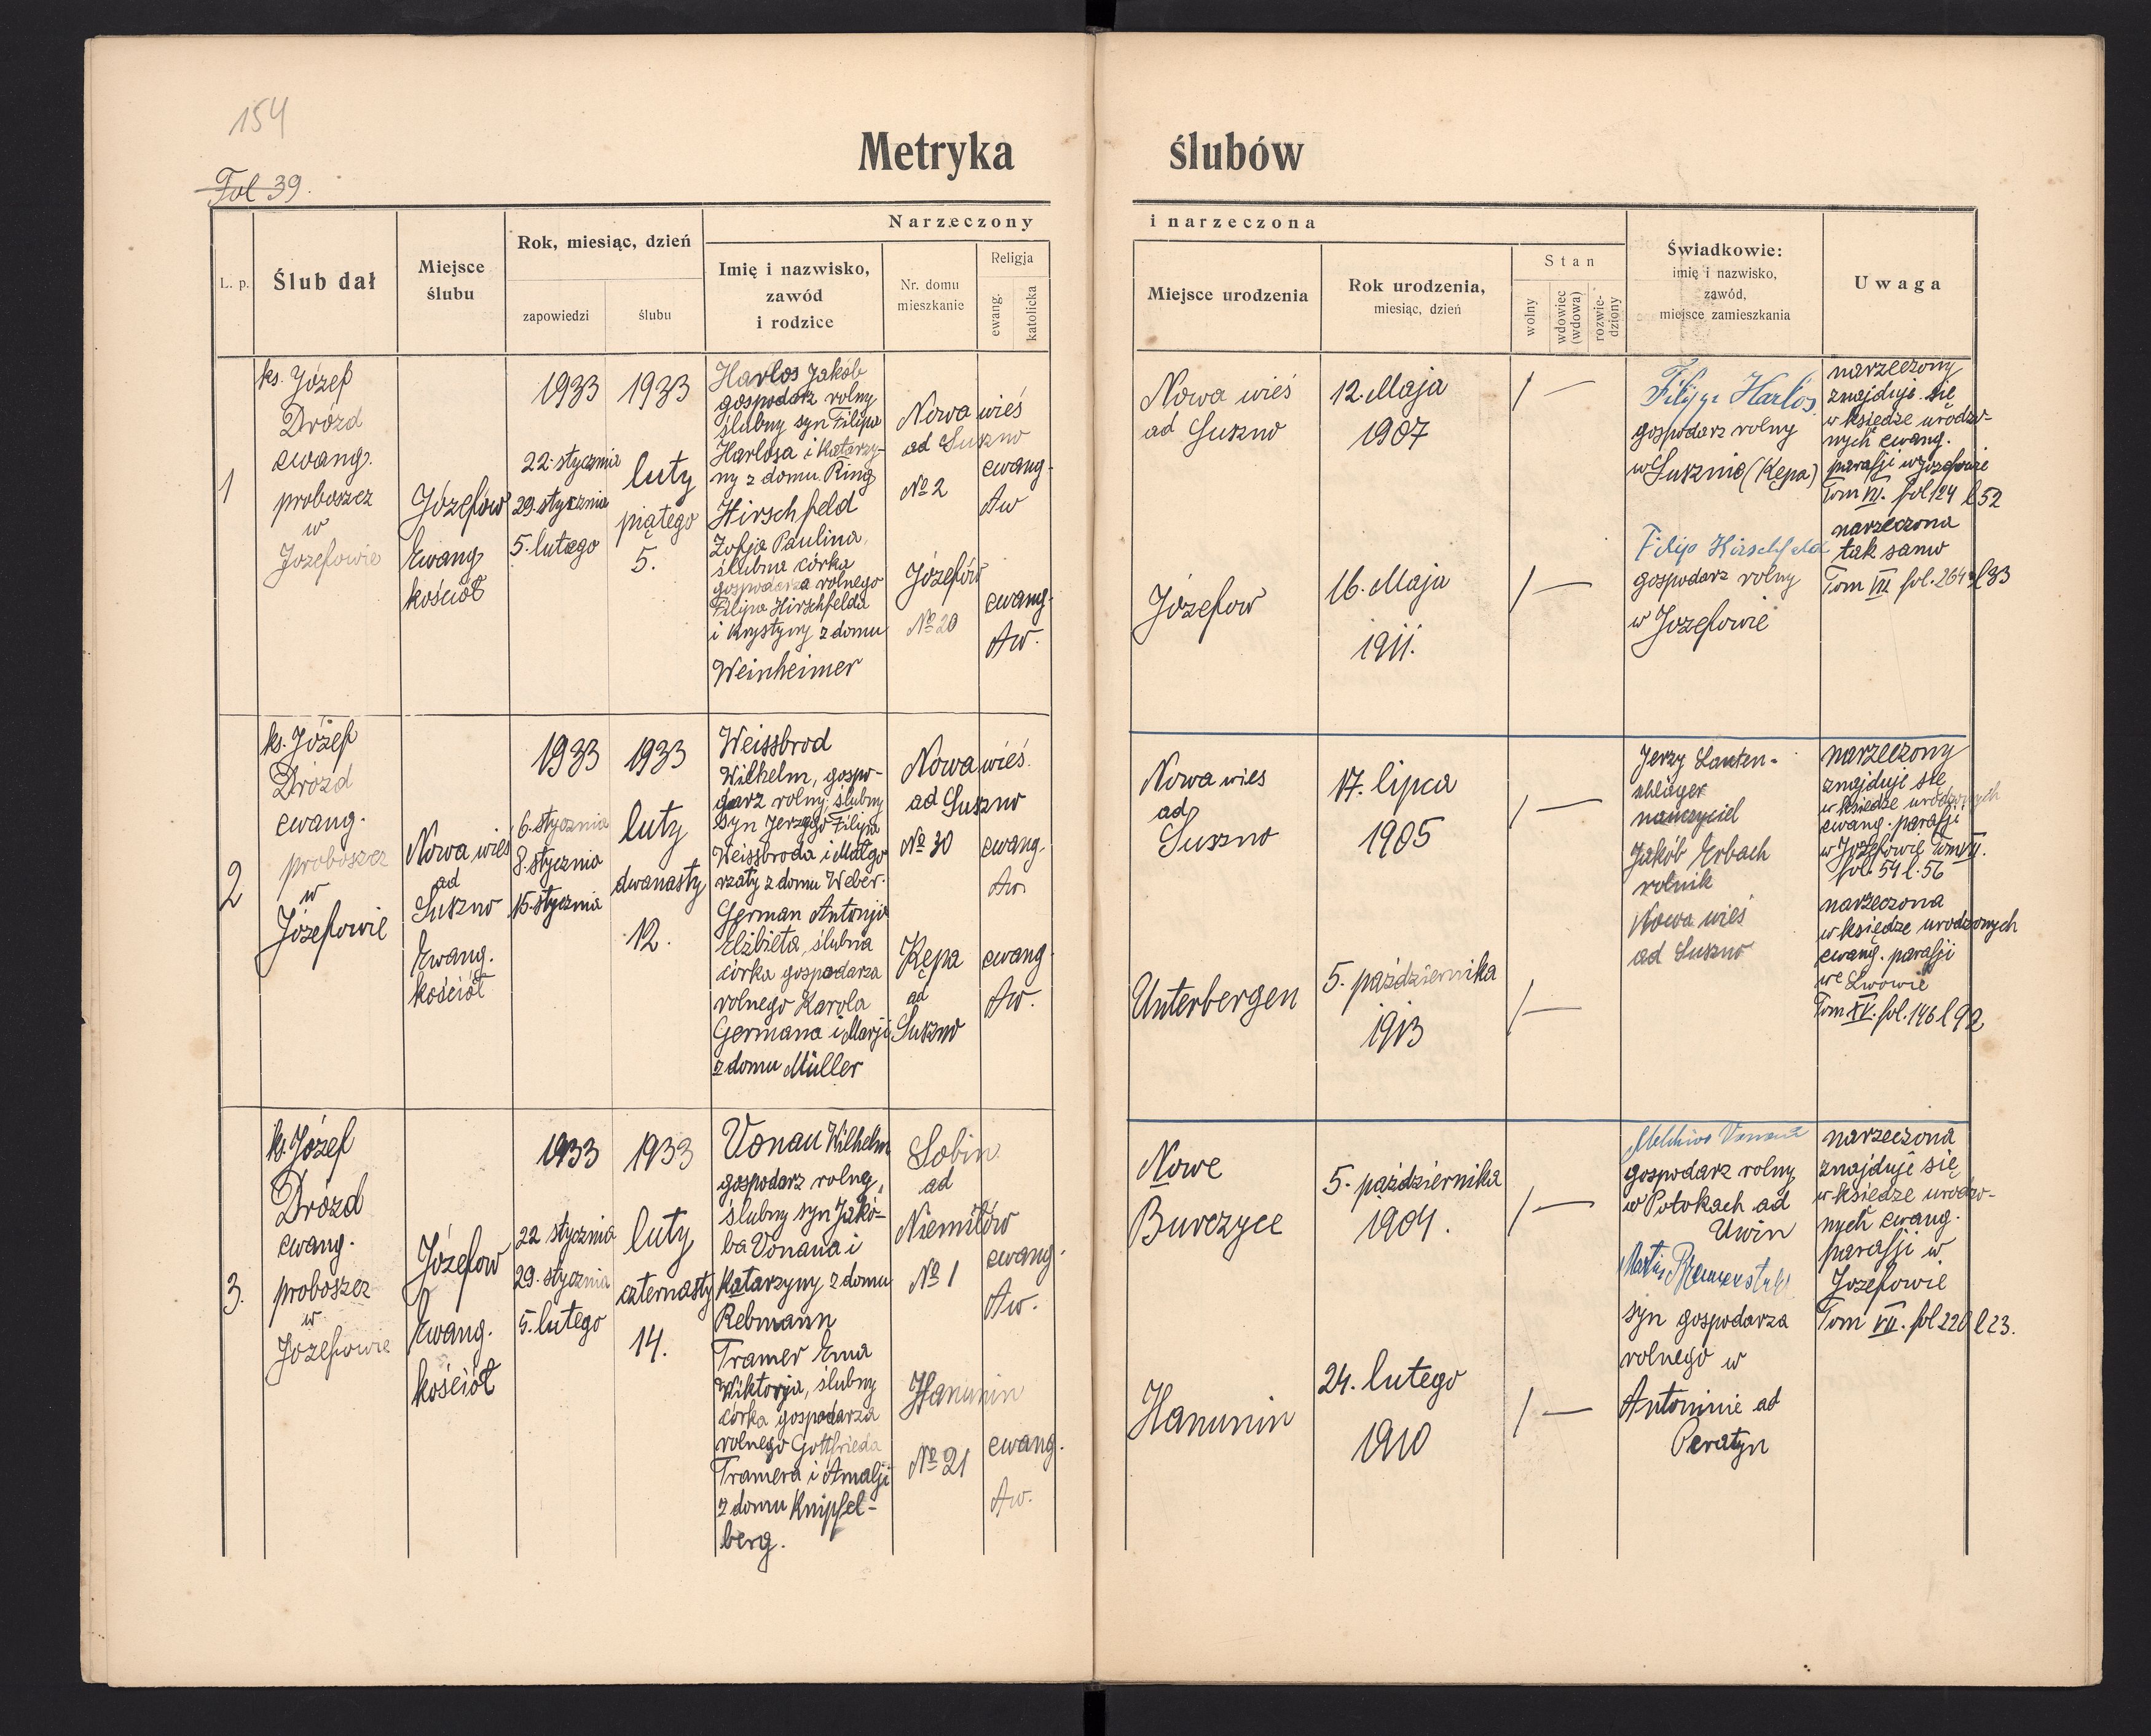 154
Fol 39.
Metryka ślubów
Narzeczony i narzeczona
L. p.
Ślub dał
Miejsce
ślubu
Rok, miesiąc, dzień
zapowiedzi
ślubu
Imię i nazwisko,
zawód
i rodzice
Nr. domu
mieszkanie
Religja
ewang.
katolicka
Miejsce urodzenia
Rok urodzenia,
miesiąc, dzień
Stan
wolny
wdowiec
(wdowa)
rozwie-
dziony
Świadkowie:
imię i nazwisko,
zawód,
miejsce zamieszkania
Uwaga
1
ks. Józef
Drozd
ewang.
proboszcz
w
Jozefowie
Józefów
Ewang
kościół
1933
22. stycznia
29. stycznia
5. lutego
1933
luty
piątego
5.
Harlos Jakób
gospodarz rolny
ślubny syn Filipa
Harlosa i Katarzy-
ny z domu Ring
Hirschfeld
Zofja Paulina,
ślubna córka
gospodarza rolnego
Filipa Hirschfelda
i Krystyny z domu
Weinheimer
Nowa wieś
ad Suszno
No 2
Józefów
No 20
ewang.
Aw
ewang.
Aw.
Nowa wieś
ad Suszno
Józefow
12. Maja
1907
16. Maja
1911.
/ —
/ —
Filipp Harlos
gospodarz rolny
w Susznie (Kępa)
Filip Hirschfeld
gospodarz rolny
w Jozefowie
narzeczony
znajduje się
w księdze urodzo-
nych ewang.
parafji w Jozefowie
Tom VI. fol 124 l 52
narzeczona
tak samo
Tom VII fol. 264 l 33
2
ks. Józef
Drozd
ewang.
proboszcz
w
Józefowie
Nowa wieś
ad
Suszno
Ewang.
kościół
1933
6. stycznia
8. stycznia
15. stycznia
1933
luty
dwanasty
12.
Weissbrod
Wilhelm, gospo-
darz rolny, ślubny
syn Jerzego Filipa
Weissbroda i Małgo
rzaty z domu Weber.
German Antonja
Elżbieta, ślubna
córka gospodarza
rolnego Karola
Germana i Marji
z domu Müller
Nowa wieś
ad Suszno
No 30
Kępa
ad
Suszno
ewang.
Aw.
ewang.
Aw.
Nowa wies
ad
Suszno
Unterbergen
17. lipca
1905
5. października
1913
/ —
/ —
Jerzy Lauten-
schläger
nauczyciel
Jakób Erbach
rolnik
Nowa wieś
ad Suszno
narzeczony
znajduje się
w księdze urodzonych
ewang. parafji
w Józefowie Tom VI.
fol. 54 l. 56
narzeczona
w księdze urodzonych
ewang. parafji
we Lwowie
Tom XV. fol. 146 l 92
3.
ks. Józef
Drozd
ewang.
proboszcz
w
Jozefowie
Józefow
Ewang.
kościół
1933
22 stycznia
29. stycznia
5. lutego
1933
luty
czternasty
14.
Vonau Wilhelm
gospodarz rolny,
ślubny syn Jakó-
ba Vonaua i
Katarzyny z domu
Rebmann
Tramer Ema
Wiktorja, ślubny
córka gospodarza
rolnego Gottfrieda
Tramera i Amalji
z domu Knipfel-
berg.
Sobin
ad
Niemiłów
No 1
Hanunin
No 21
ewang.
Aw.
ewang.
Aw.
Nowe
Burczyce
Hanunin
5. października
1904.
24. lutego
1910
/ —
/ —
Melchior Vonau
gospodarz rolny
w Potokach ad
Uwin
Martin
syn gospodarza
rolnego w
Antoninie ad
Peratyn
narzeczona
znajduje się
w księdze urodzo-
nych ewang.
parafji w
Jozefowie
Tom VII. fol 220 l 23.